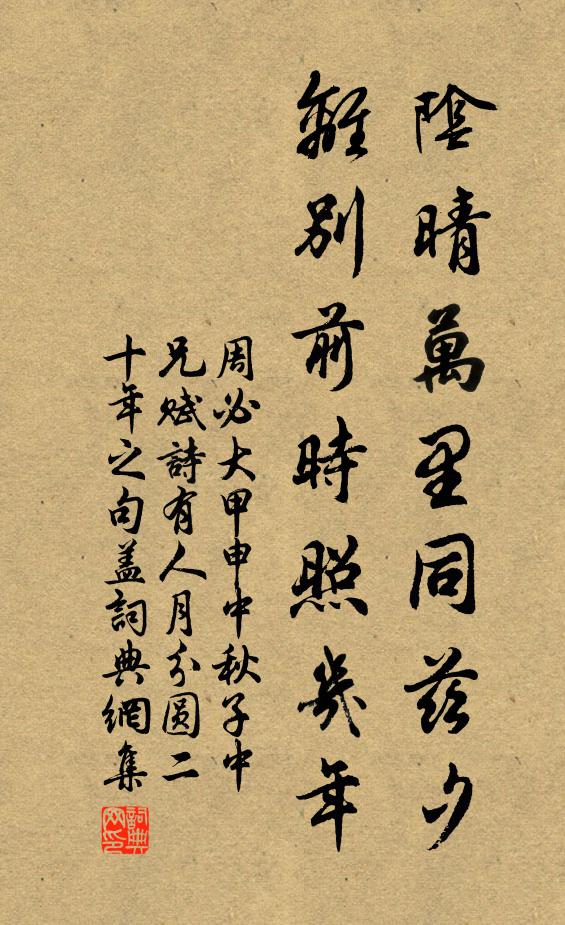 陰晴萬里同茲夕
離別前時照幾年
周必大甲申中秋子中
兄賦詩有人月分圓二
十年之句蓋詞典網集
詞典
网印